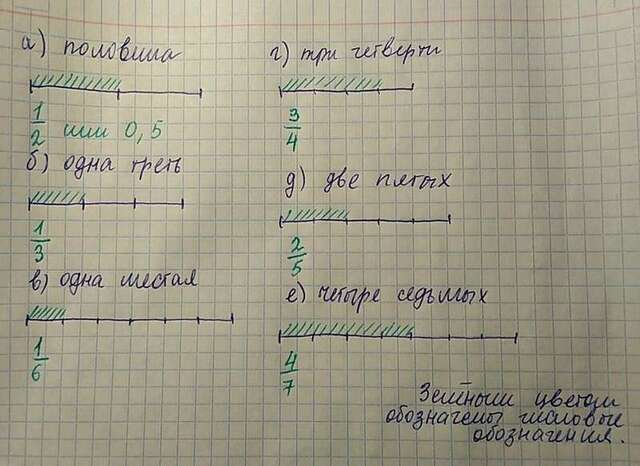 а) половина
1/2 или 0,5
б) одна треть
1/3
в) одна шестая
1/6
г) три четверти
3/4
д) две пятых
2/5
е) четыре седьмых
4/7
Зелёным цветом
обозначены числовые
обозначения.